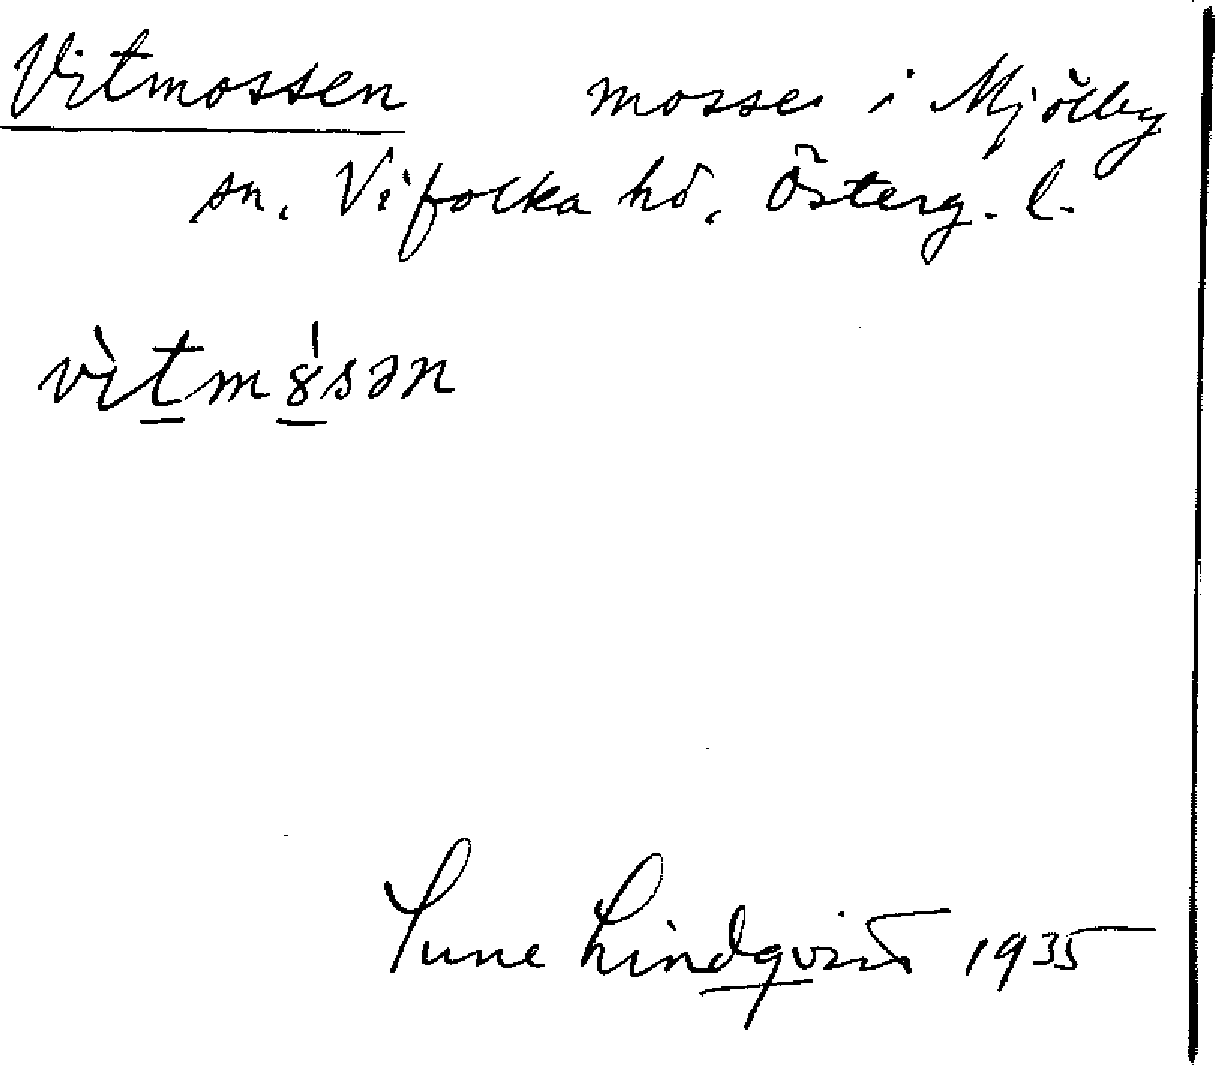 Vitmossen mosse i Mjölby
sn. Vifolka hd. Österg. l.
vìtm8́sən
Sune Lindqvist 1935